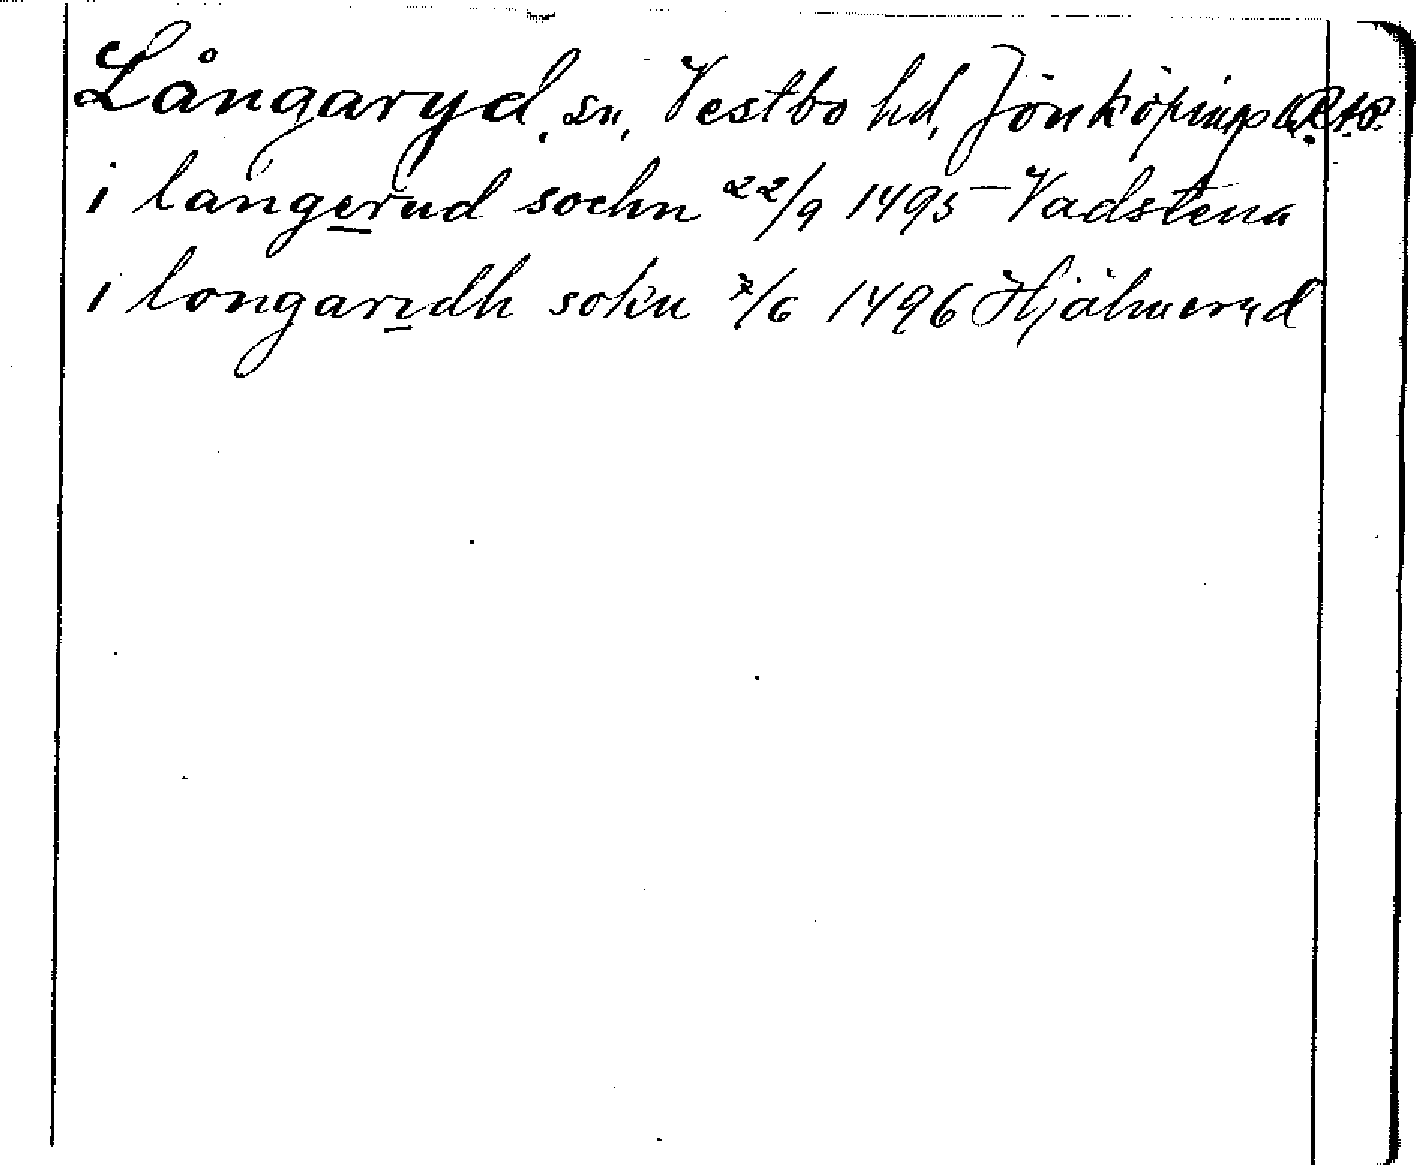 Långaryd, sn, Vestbo hd, Jönköpings l. R.A.P.
i langerud sochn 22/9 1495 Vadstena
i longaridh sokn /6 1496 Hjälmeryd